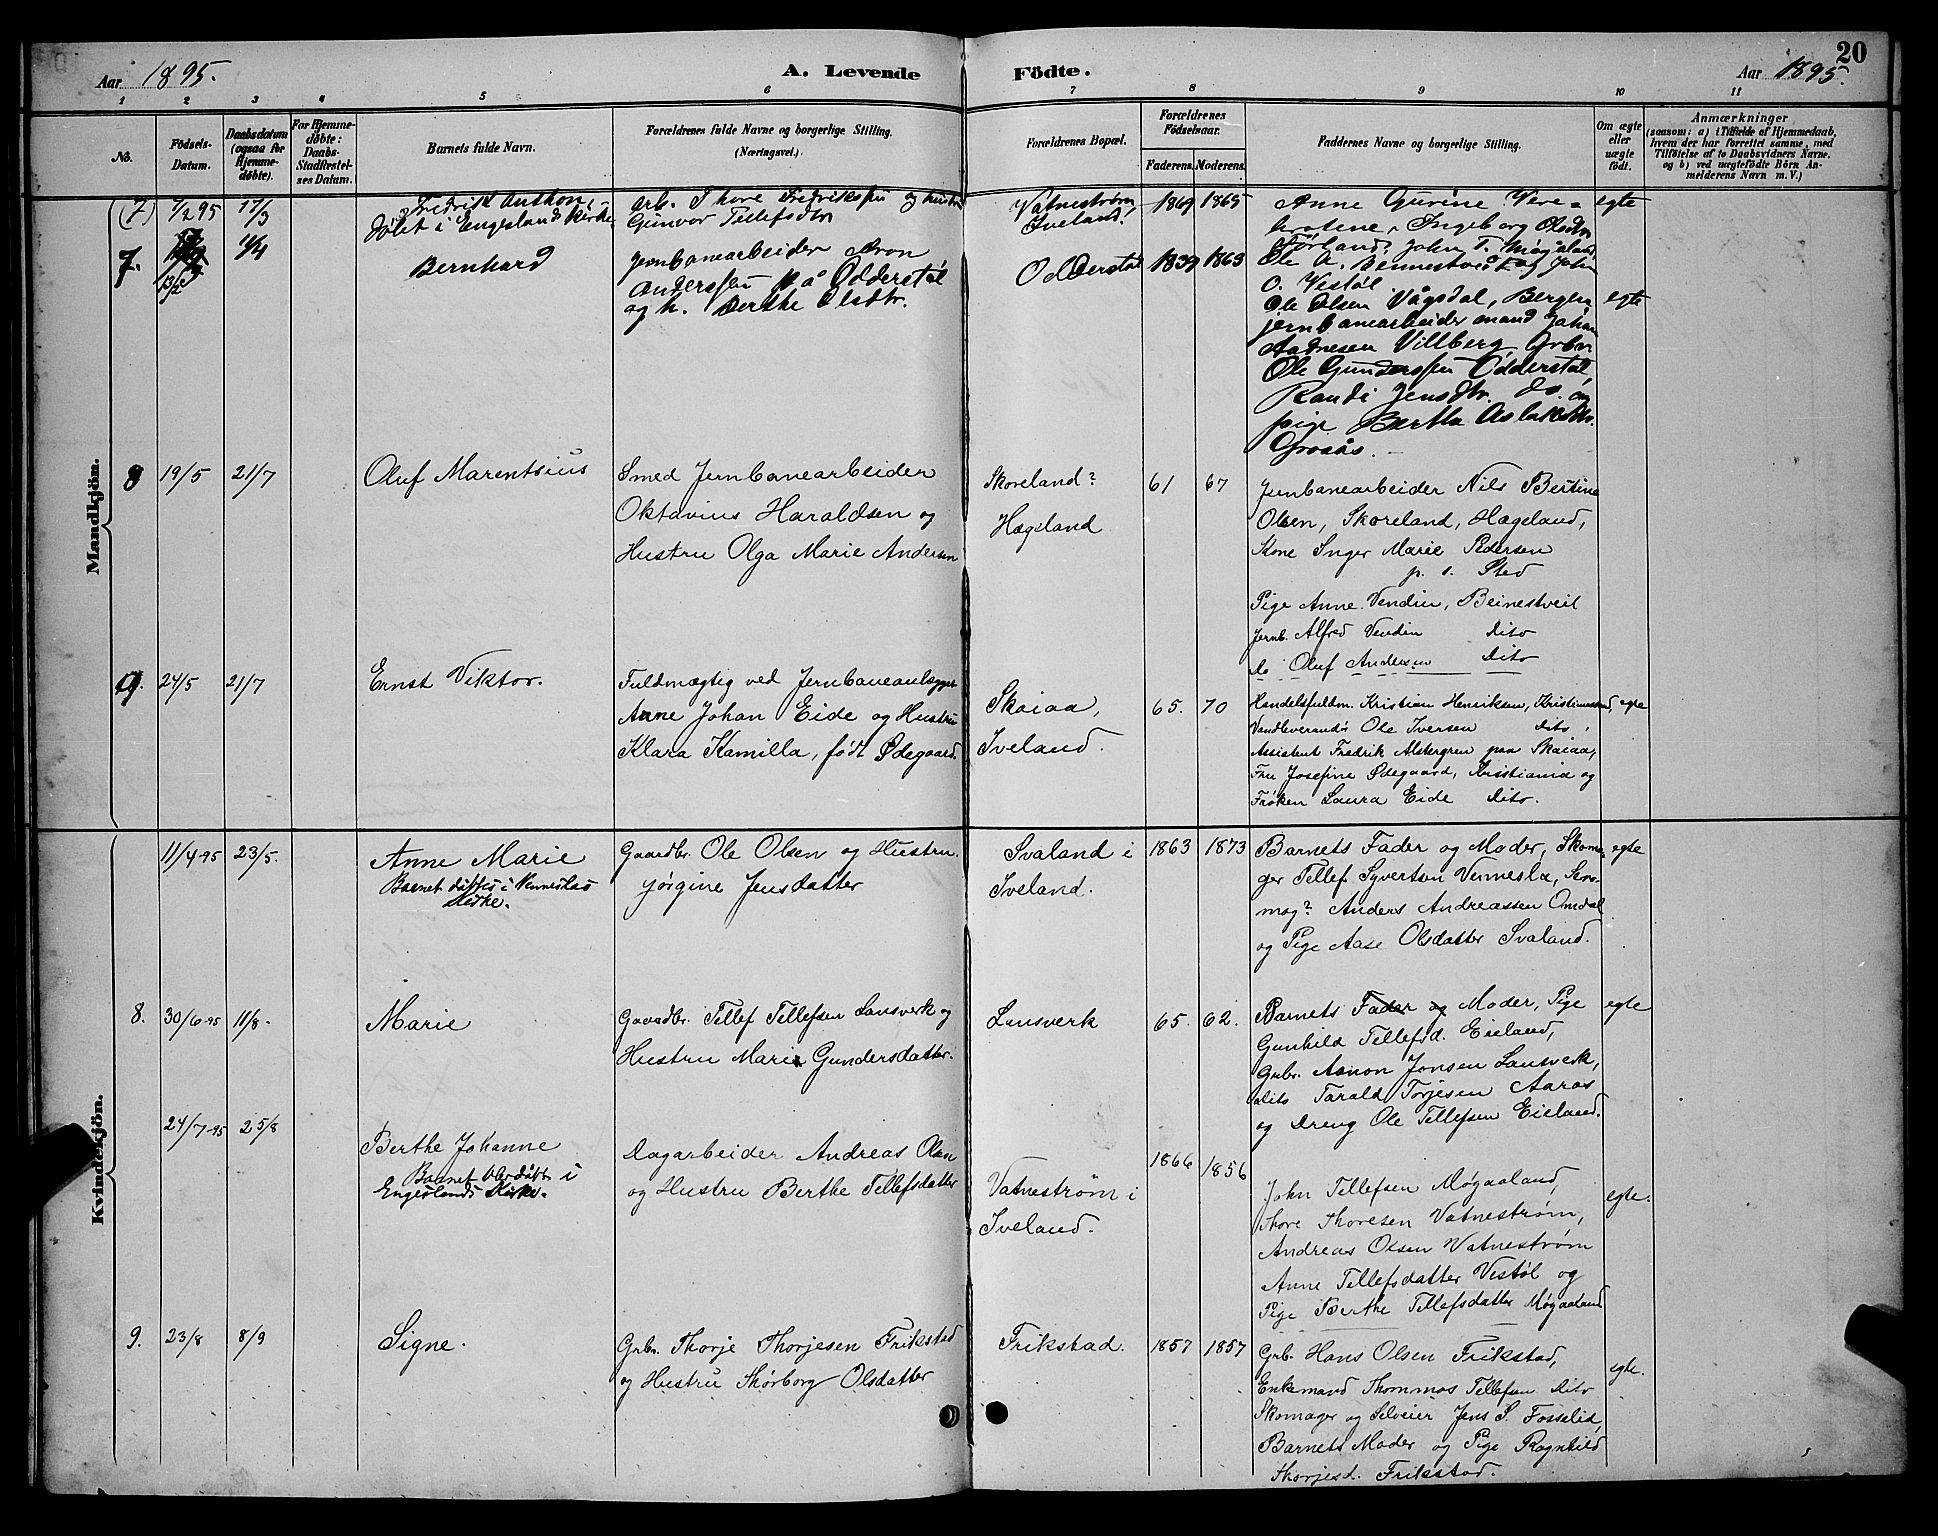 20
Aar 1895.
A. Levende Födte.
Aar 1895.
1 2 3 4 5 6 7 8 9 10 11
No.
Födsels-Datum.
Daabsdatum (ogsaa for Hjemmedöbte).
For Hjemmedöbte: Daabs-Stadfæstelses Datum.
Barnets fulde Navn.
Forældrenes fulde Navne og borgerlige Stilling.
(Næringsvei.)
Forældrenes Bopæl.
Forældrenes Fødselsaar.
Faderens.
Moderens.
Faddernes Navne og borgerlige Stilling.
Om ægte eller uægte født.
Anmærkninger
(saasom: a) i Tilfælde af Hjemmedaab, hvem der har forrettet samme, med Tilföielse af to Daabsvidners Navne, og b) ved uægtefödte Börn Anmelderens Navn m. V.)
Mandkjön.
(7) 7/2 95 17/3
Fredrik Anthon,
døbt i Engesland Kirke
Arb. Thore Fredriksen og hustru
Gunvor Tellefsdtr
Vatnestrøm,
Iveland.
1869 1865
Anne Gurine
Ingeborg Olsdtr
Førland, John T. Møgaland,
Ole A. Bennestvedt og John
O. Vestøl
egte
7. 13/2 14/4
Bernhard
Jernbanearbeider Aron
Anderssen på Odderstøl
og h. Berthe Olsdtr.
Odderstøl
1839 1863
Ole Olsen Vågsdal, Bergen
jernbanearbeider mand Johan
Aadnesen Villberg Grbr.
Ole Gunderssen Odderstøl
Randi Jensdtr. do. og
pige Bertha Aslaksdtr.
Grosås.
egte
8 19/5 21/7
Oluf Marentsius
Smed Jernbanearbeider
Oktavius Haraldsen og
Hustru Olga Marie Andersen
Skoreland?
Hægeland
61 67
Jernbanearbeider Nils Bertine
Olsen, Skoreland, Hægeland,
Kone Inger Marie Pedersen
p. s. Sted
Pige Anne Vendin, Beinestveit
Jernb. Alfred Vendin Dito
Do Oluf Andersen Dito
9. 24/5 21/7
Ernst Viktor.
Fuldmægtig ved Jernbaneanlægget
Arne Johan Eide og Hustru
Klara Kamilla, født Ødegaard.
Skaiaa,
Iveland.
65. 70
Handelsfuldm. Kristian Henriksen, Kristianssand,
Vandleverandø Ole Iversen Dito,
Assistent Fredrik Alstergren paa Skaiaa,
Fru Josefine Ødegaard, Kristiania og
Frøken Laura Eide Dito.
egte
Kvindekjön.
11/4-95 23/5.
Anne Marie
Barnet døbtes i Vennesla
Kirke.
Gaardbr. Ole Olsen og Hustru
Jørgine Jensdatter
Svaland i
Iveland.
1863 1873
Barnets Fader og Moder, Skoma-
ger Tellef Syvertsen Vennesla,
Anders Andreassen Omdal
og Pige Aase Olsdatter Svaland.
egte
8. 30/6-95 11/8.
Marie
Gaardbr. Tellef Tellefsen Lansverk og
Hustru Marie Gundersdatter.
Lansverk
65. 62.
Barnets Fader og Moder, Pige
Gunhild Tellefsd. Eieland,
Grbr. Aanon Jonsen Lansverk,
dito Tarald Torjesen Aaras
og Dreng Ole Tellefsen Eieland.
egte
24/7-95 25/8
Berthe Johanne
Barnet blev døbt i
Engeslands Kirke.
Dagarbeider Andreas Olsen
og Hustru Berthe Tellefsdatter
Vatnestrøm i
Iveland.
1866 1856
John Tellefsen Møgaaland,
Thore Thoresen Vatnestrøm,
Andreas Olsen Vatnestrøm
Anne Tellefsdatter Vestøl og
Pige Berthe Tellefsdatter Møgaaland
egte.
9. 23/8 8/9
Signe.
Grbr. Thorje Thorjesen Frikstad
og Hustru Thorborg Olsdatter
Frikstad.
1857 1857
Grb. Hans Olsen Frikstad,
Enkemand Thommas Tellefsen Dito
Skomager og Selveier Jens S. Fosselid,
Barnets Moder og Pige Ragnhild
Thorjesd. Frikstad.
egte.